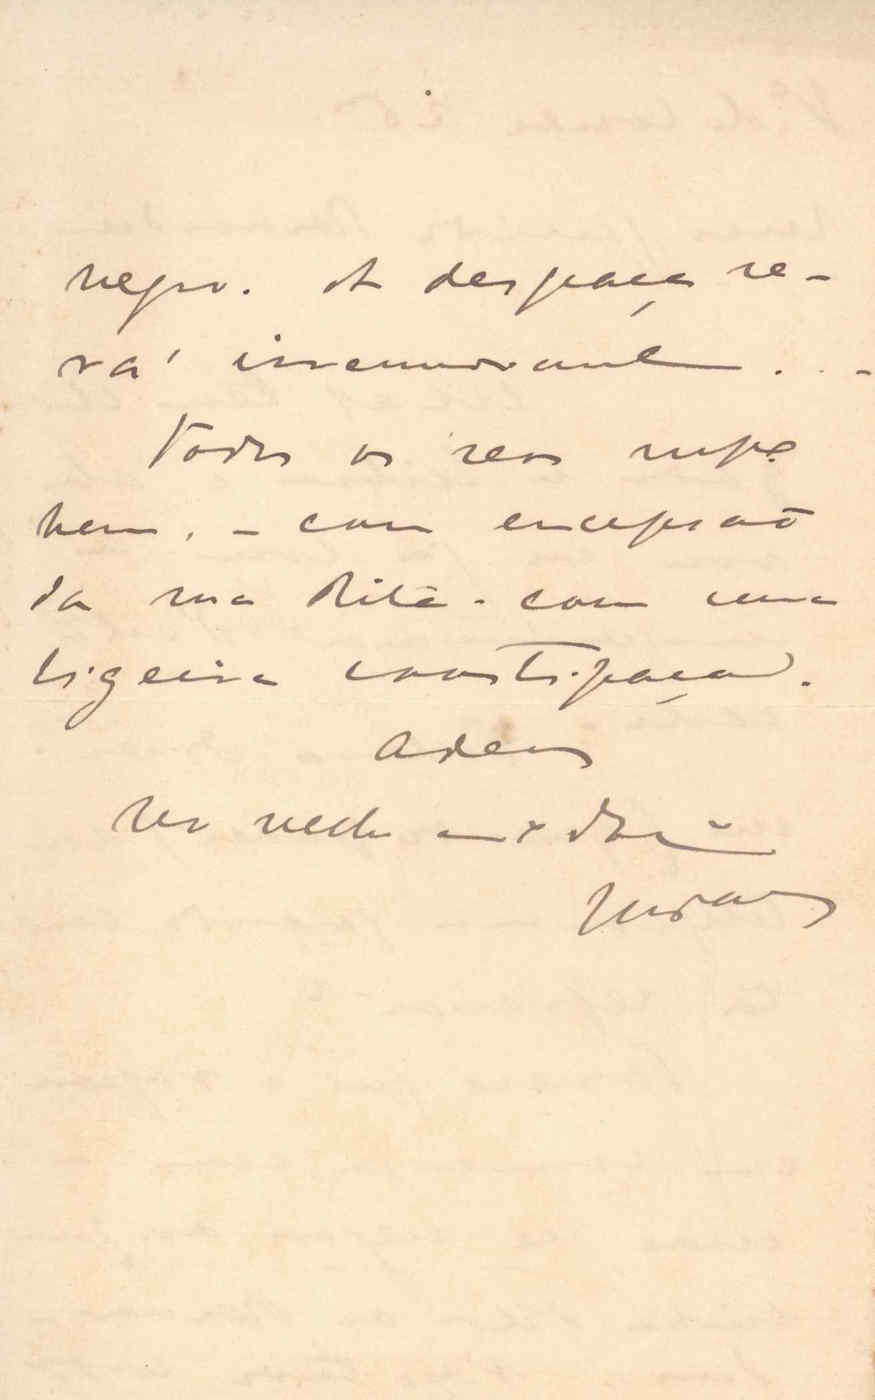 negro. A desgraça se-
rá irremovivel . . -
Todos os seus
bem, - com excepsaõ
da sua Rita - com uma
ligeira constipação.
Adeus
Seu velho am.º